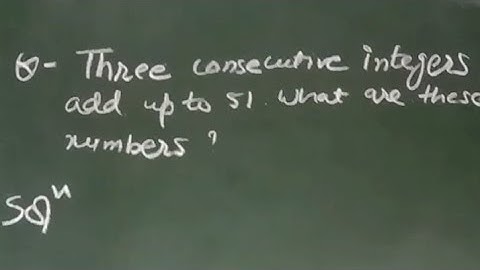 Q- Three consecutive integers
add up to 51. What are these
numbers ?
Solⁿ